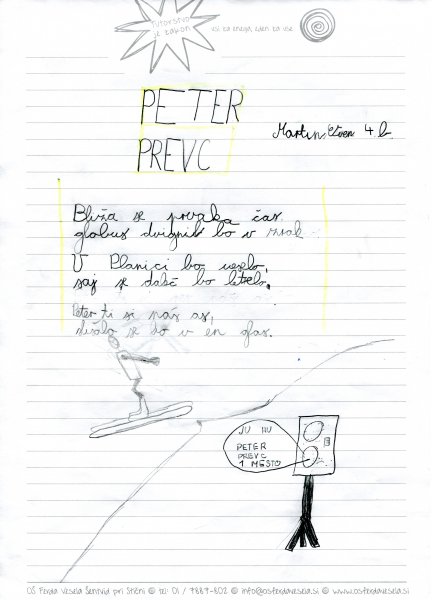 Tutorstvo
je zakon
vsi za enega, eden za vse
PETER
PREVC
Martin 4. b
Bliža se prvaka čas,
globus dvignil bo v zrak.
V Planici bo veselo,
saj se daleč bo letelo.
Peter ti si naš as,
slišalo se bo v en glas.
JU HU
PETER
PREVC
1. MESTO
OŠ Ferda Vesela Šentvid pri Stični © tel: 01 / 7887-802 © info@osferdavesela.si © www.osferdavesela.si